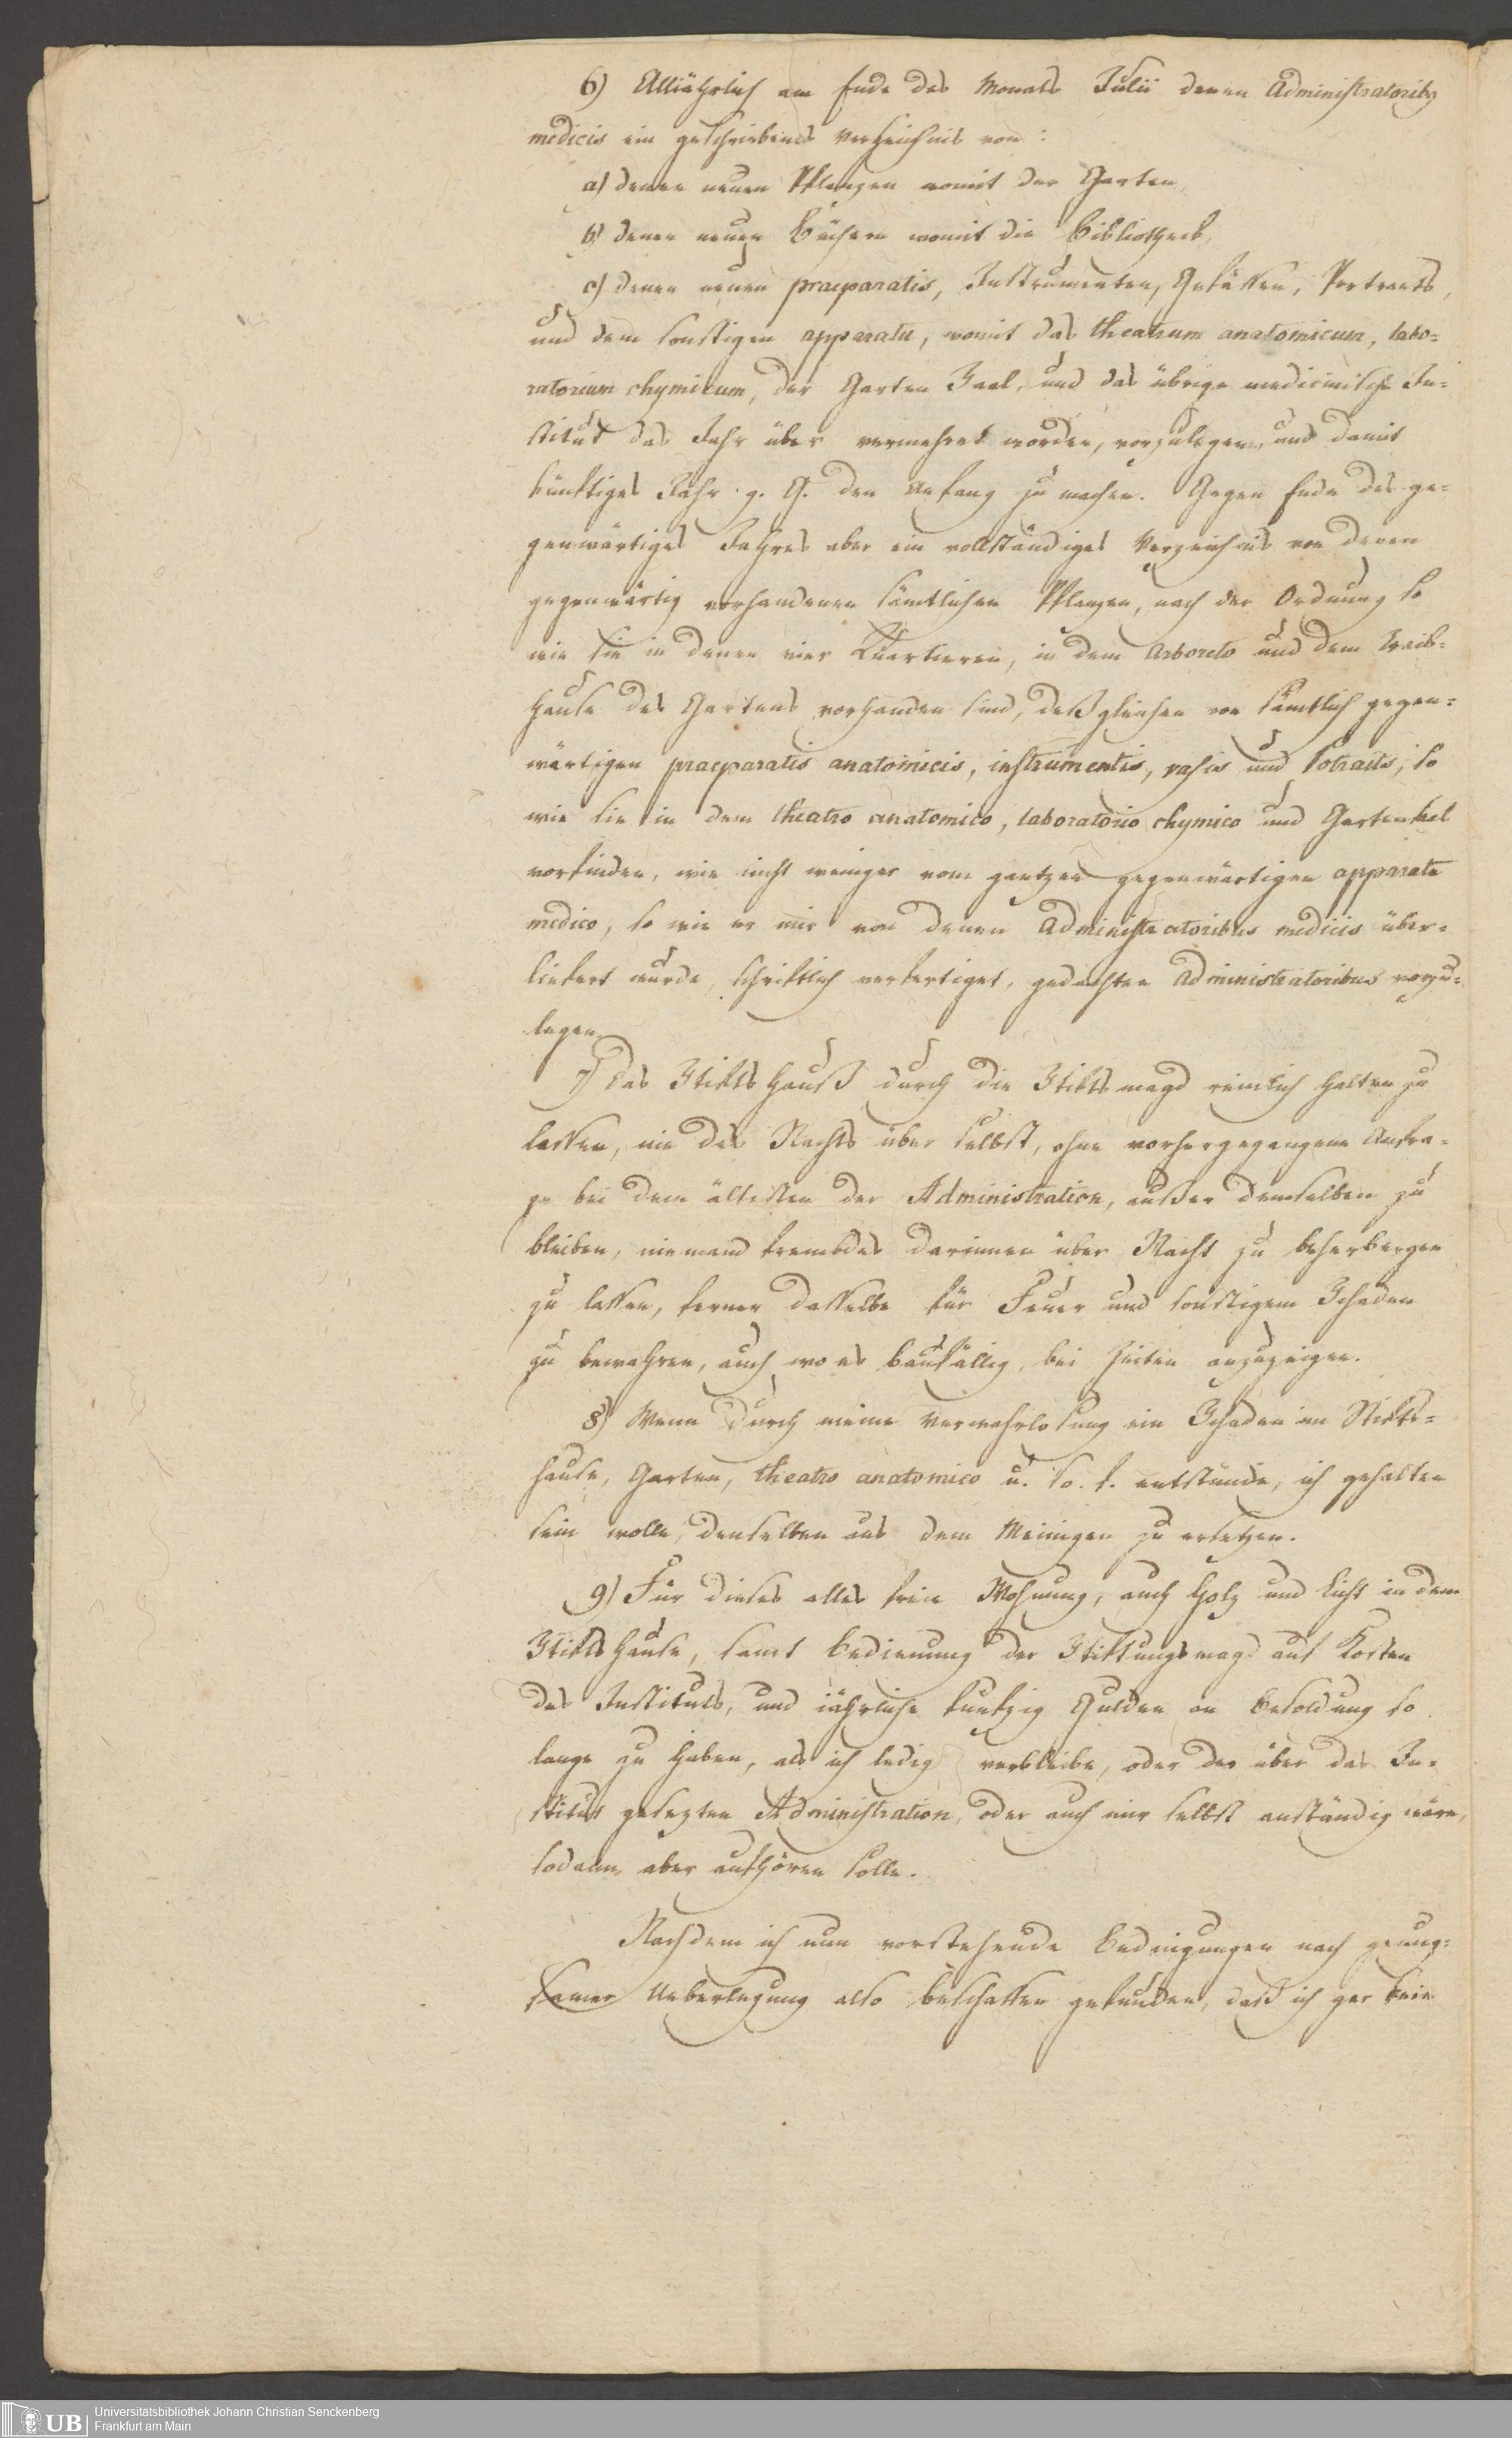 6) Alljährlich am Ende des Monats Julii denen Administratoribq
medicis ein geschriebenes Verzeichnis von:
a) denen neuen Pflanzen womit der Garten,
b) denen neuen Büchern womit die Bibliotheck,
c) denen neuen praeparatis, Instrumenten, Gefässen, Portraits,
und dem sonstigen apparatu, womit das theatrum anatomicum, labo-
ratorium chymicum, der Garten Saal, und das übrige medicinische In-
stitut das Jahr über vermehret worden, vorzulegen, und damit
künftiges Jahr g. G. den Anfang zu machen. Gegen Ende des ge-
genwärtiges Jahres aber ein vollständiges Verzeichnis von denen
gegenwärtig vorhandenen sämtlichen Pflanzen, nach der Ordnung so
wie sie in denen vier Quartieren, in dem Arboreto und dem Treib-
hause des Gartens vorhanden sind, deßgleichen von sämtlich gegen-
wärtigen praeparatis anatomicis, instrumentis, vasis und Potraits, so
wie sie in dem theatro anatomico, laboratorio chymico und Gartensal
vorfinden, wie nicht weniger vom gantzen gegenwärtigen apparatu
medico, so wie er mir von denen Administratoribus medicis über-
liefert wurde, schriftlich verfertiget, gedachten Administratoribus vorzu-
legen.
7) Das Stiftshauß durch die Stiftsmagd reinlich halten zu
lassen, nie des Nachts über selbst, ohne vorhergegangene Anfra-
ge bei dem ältesten der Administration, außer demselben zu
bleiben, niemand frembdes darinnen über Nacht zu beherbergen
zu lassen, ferner dasselbe für Feuer und sonstigem Schaden
zu bewahren, auch wo es baufällig, bei Zeiten anzuzeigen.
8) Wenn durch meine Verwahrlosung ein Schaden im Stifts-
hause, Garten, theatro anatomico u. so. f. entstünde, ich gehalten
sein wolle, denselben aus dem Meinigen zu ersetzen.
9) Für dieses alles freie Wohnung, auch Holz und Licht in dem
Stiftshause, samt Bedienung der Stiftungsmagd auf Kosten
des Instituts, und jährliche funfzig Gulden an Besoldung so
lange zu haben, als ich ledig verbleibe, oder der über das In-
stitut gesezten Administration, oder auch mir selbst anständig wäre,
sodann aber aufhören solle.
Nachdem ich nun vorstehende Bedingungen nach genug-
samer Ueberlegung also beschaffen gefunden, daß ich gar kein
Universitätsbibliothek Johann Christian Senckenberg
Frankfurt am Main
UB